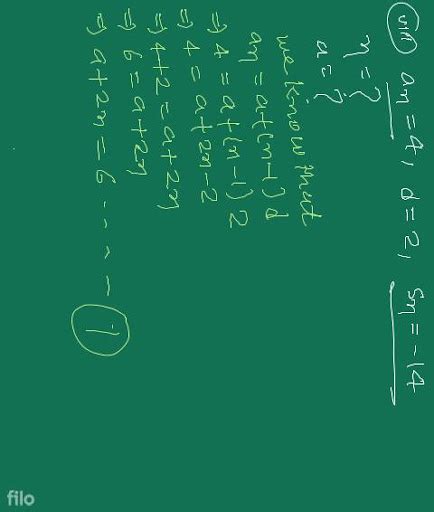 (viii) an = 4, d = 2, Sn = -14
n = ?
a = ?
we know that
an = a+(n-1)d
⇒ 4 = a+(n-1)2
⇒ 4 = a+2n-2
⇒ 4+2 = a+2n
⇒ 6 = a+2n
⇒ a+2n = 6 - - - - (1)
filo